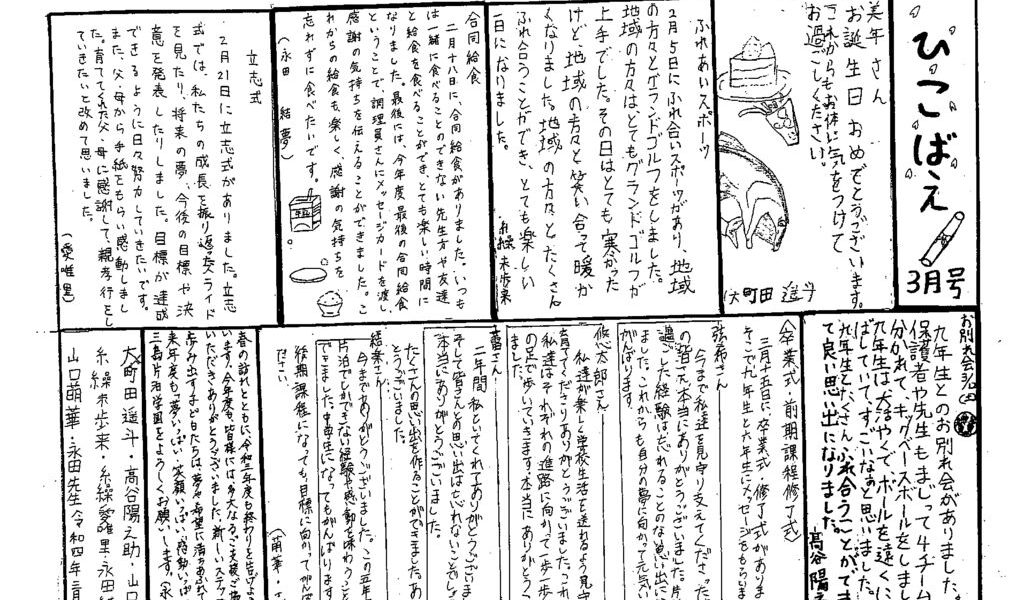 ひこばえ
3月号
美年さん
お誕生日おめでとうございます。
これからもお体に気をつけて
お過ごしください。
(大町田 遥斗
ふれあいスポーツ
2月5日にふれ合いスポーツがあり、地域
の方々とグランドゴルフをしました。
地域の方々はとてもグランドゴルフが
上手でした。その日はとても寒かった
けど、地域の方々と笑い合って暖か
くなりました。地域の方々とたくさん
ふれ合うことができ、とても楽しい
一日になりました。
糸繰 未歩来
合同給食
二月十八日に、合同給食がありました。いつも
は一緒に食べることのできない先生方や友達
と給食を食べることができ、とても楽しい時間に
なりました。最後には、今年度最後の合同給食
ということで、調理員さんにメッセージカードを渡し、
感謝の気持ちを伝えることができました。こ
れからの給食も、楽しく、感謝の気持ちを
忘れずに食べたいです。
(永田 結夢)
立志式
2月21日に立志式がありました。立志
式では、私たちの成長を振り返るスライド
を見たり、将来の夢、今後の目標や決
意を発表したりしました。目標が達成
できるように日々努力していきたいです。
また、父・母から手紙をもらい感動しまし
た。育ててくれた父・母に感謝して、親孝行をし
ていきたいと改めて思いました。
(愛唯里)
お別れ会3/4(金)
九年生とのお別れ会がありました。
保護者や先生もまじって4チーム
分かれて、キックベースボールをしまし
九年生は大活やくで、ボールを遠くに
ばしていて、すごいなぁと思いました。
九年生とたくさんふれ合うことができま
て良い思い出になりました。
高谷 陽
(卒業式・前期課程修了式)
三月十五日に卒業式・修了式がありま
そこで九年生と六年生にメッセージをもらいま
弥希さん
今まで私達を見守り支えてくださった
の皆さん本当にありがとうございました。片
過ごした経験はわすれることのない思い出に
ました。これからも自分の夢に向かって元気い
がんばります。
悠太郎さん
私達が楽しく学校生活を送れるよう見守
育ててくださりありがとうございました。これ
私達はそれぞれの進路に向かって一歩一歩
の足で歩いていきます。本当に、ありがとうご
ました。
二年間、私といてくれてありがとうございま
そして皆さんとの思い出はわすれないことでしょ
本当にありがとうございました。
たくさんの思い出を作ることができました。あ
とうございました。
結楽さん
今までありがとうございました。この五年
片泊でしかできない経験や感動を味わうこと
できました。中学生になってもがんばります
後期課程になっても、目標に向かってがんば
ださい。
(萌華・
春の訪れとともに、令和三年度も終わりを告げよ
います。今年度も皆様には、多大なるご支援ご協
いただきありがとうございました。新しいステッ
歩み出す子ども達たちは、夢や希望に満ちあふれて
来年度も「夢いっぱい・笑顔いっぱい・感動いっぱ
三島片泊学園をよろしくお願いします。(永
大町田遥斗・高谷陽之助・山口
糸繰未歩来・糸繰愛唯里・永田結
山口萌華・永田先生 令和四年三月